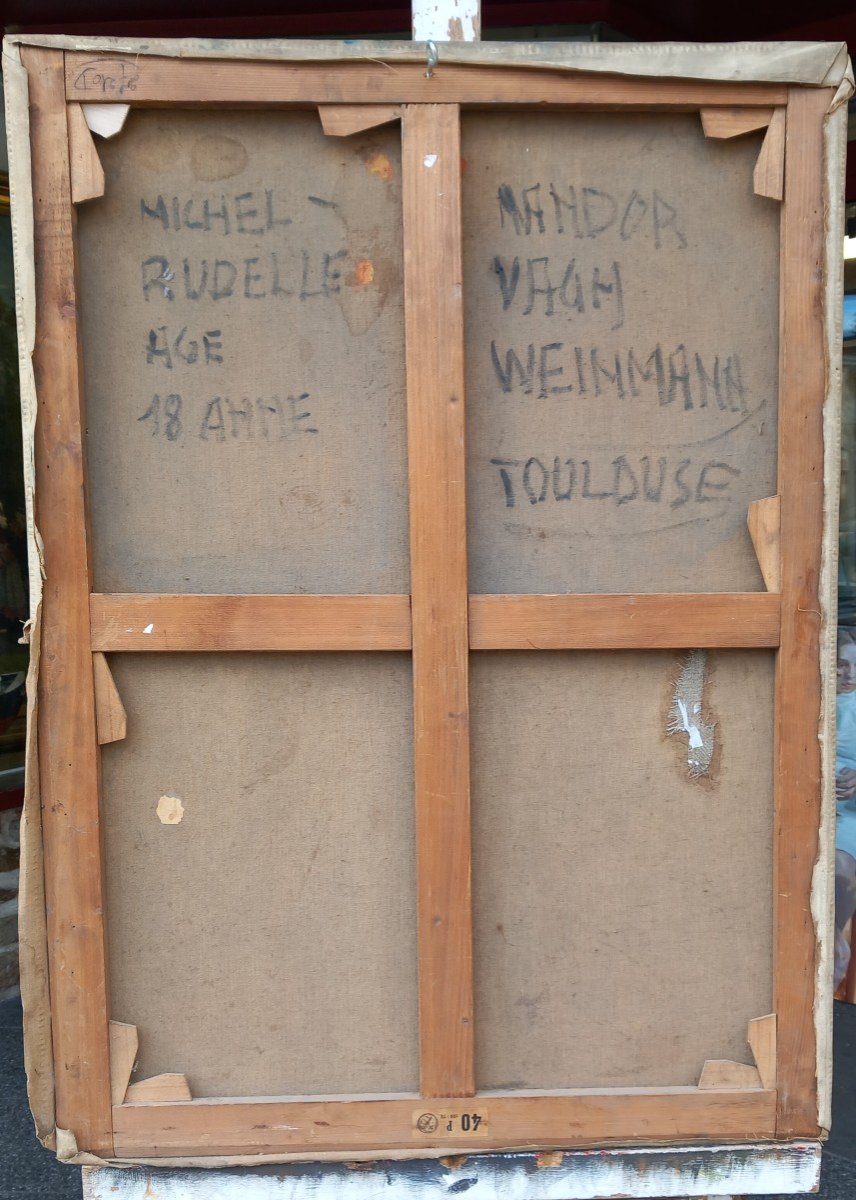 MICHEL -
RUDELLE
AGE
18 ANNE
NANDOR
VAGH
WEINMANN
TOULOUSE
40 P